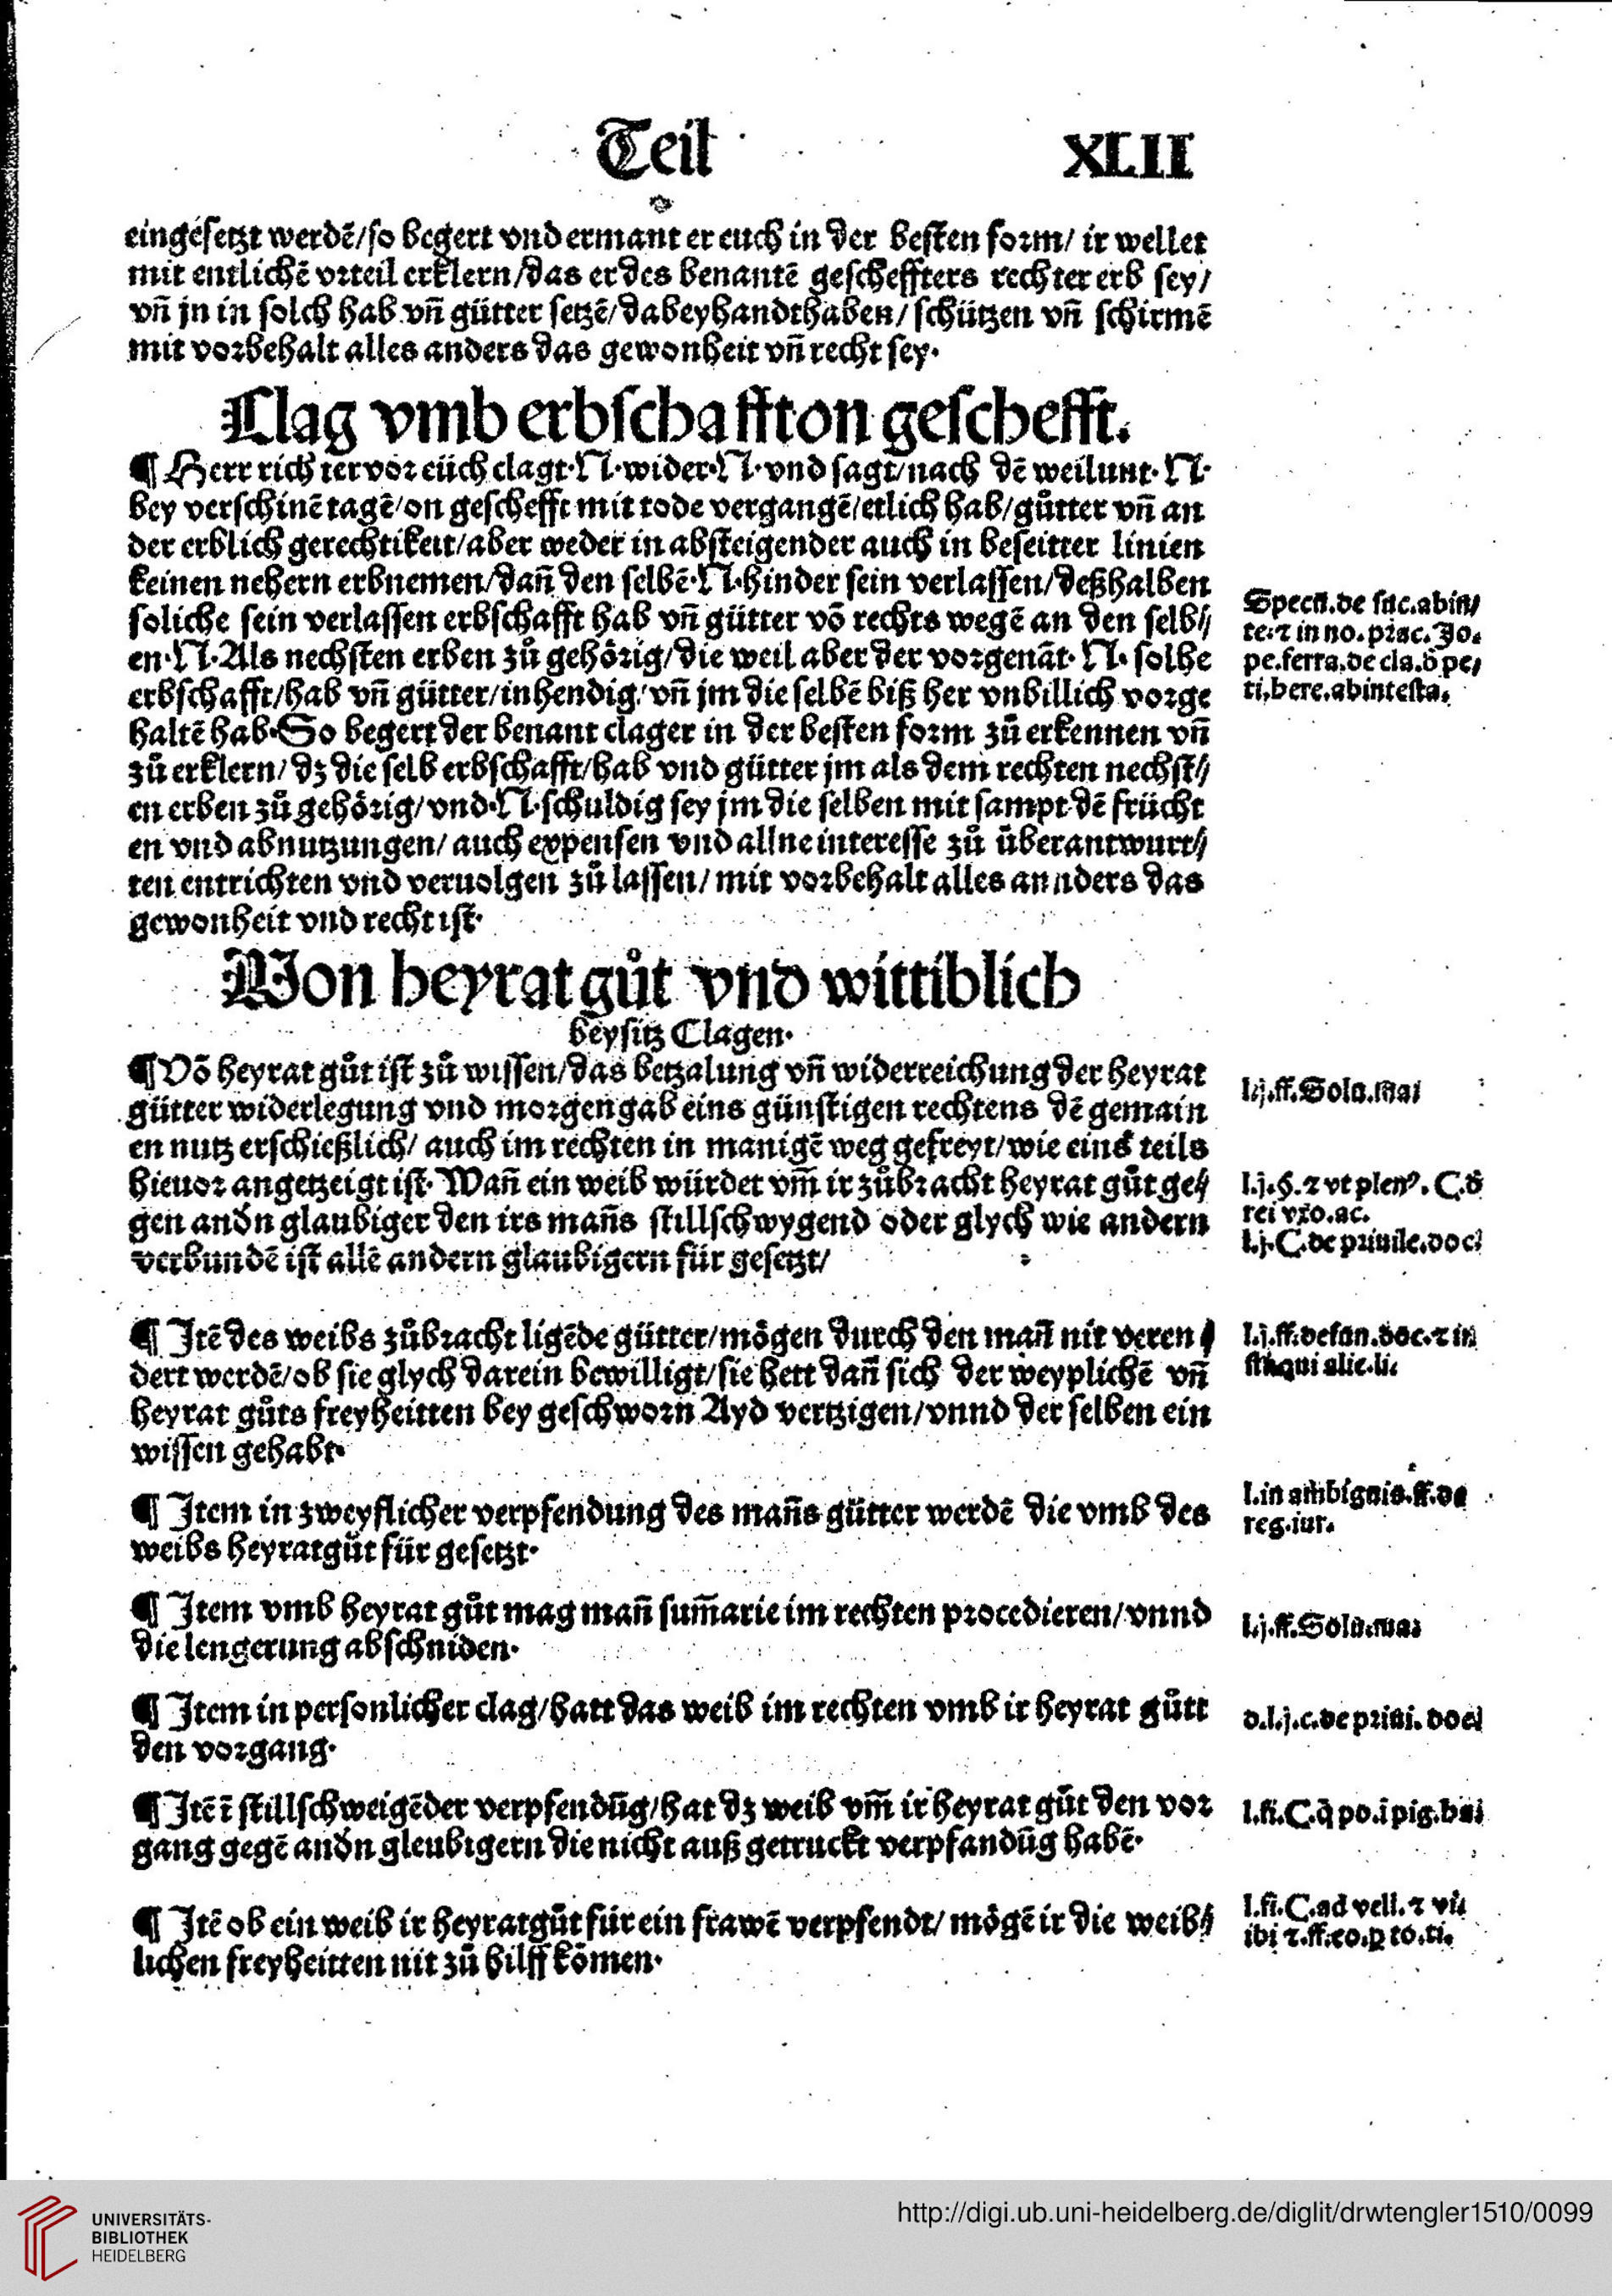 Teil XLII
eingesetzt werdē/so begert vnd ermant er euch in der besten form/ ir wellet
mit entlichē vrteil erklern/das er des benantē gescheffters rechter erb sey/
vn̄ jn in solch hab vn̄ gütter setzē/dabey handthaben/schützen vn̄ schirmē
mit vorbehalt alles anders das gewonheit vn̄ recht sey.
Clag vmb erbschafft on geschefft.
¶ Herr richter vor eüch clagt.N.wider.N.vnd sagt/nach dē weilunt.N.
bey verschinē tagē/on geschefft mit tode vergangē/etlich hab/gůtter vn̄ an
der erblich gerechtikeit/aber weder in absteigender auch in beseitter linien
keinen nehern erbnemen/dan̄ den selbē.N.hinder sein verlassen/deßhalben
soliche sein verlassen erbschafft hab vn̄ gütter vō rechts wegē an den selb//
en.N.Als nechsten erben zů gehörig/die weil aber der vorgenāt.N.solhe
erbschafft/hab vn̄ gütter/inhendig/vn̄ jm die selbē biß her vnbillich vorge
haltē hab.So begert der benant clager in der besten form zů erkennen vn̄
zů erklern/dz die selb erbschafft/hab vnd gütter jm als dem rechten nechst//
en erben zů gehörig/vnd.N.schuldig sey jm die selben mit sampt dē frücht
en vnd abnutzungen/auch expensen vnd allne interesse zů überantwurt//
ten entrichten vnd veruolgen zů lassen/mit vorbehalt alles annders das
gewonheit vnd recht ist.
Specu.de suc.abin/
te.⁊ in no.prac.Jo.
pe.ferra.de cla.ð pe/
ti.here.abintesta.
Von heyrat gůt vnd wittiblich
beysitz Clagen.
¶ Vō heyrat gůt ist zů wissen/das betzalung vn̄ widerreichung der heyrat
gütter widerlegung vnd morgengab eins günstigen rechtens dē gemain
en nutz erschießlich/ auch im rechten in manigē weg gefreyt/wie eins teils
hieuor angetzeigt ist. Wan̄ ein weib würdet vm̄ ir zůbracht heyrat gůt ge//
gen andn̄ glaubiger den irs man̄s stillschwygend oder glych wie andern
verbundē ist allē andern glaubigern für gesetzt/
l.j.ff.Solu.ma
l.j.§.⁊ vt plen⁹.C.ð
rei vxo.ac.
l.j.C.de priuile.do
¶ Jtē des weibs zůbracht ligēde gütter/mögen durch den man̄ nit veren
dert werdē/ob sie glych darein bewilligt/sie hett dan̄ sich der weyplichē vn̄
heyrat gůts freyheitten bey geschworn Ayd vertzigen/vnnd der selben ein
wissen gehabt.
l.j.ff.de fun.doc.⁊ in
qui alie.li.
¶ Jtem in zweyflicher verpfendung des man̄s gütter werdē die vmb des
weibs heyratgůt für gesetzt.
l.in ambiguis.ff.de
reg.iur.
¶ Jtem vmb heyrat gůt mag man̄ sum̄arie im rechten procedieren/vnnd
die lengerung abschniden.
l.j.ff.Solu.ma
¶ Jtem in personlicher clag/hatt das weib im rechten vmb ir heyrat gůtt
den vorgang.
d.l.j.c.de priui.do
¶ Jtē ī stillschweigēder verpfendūg/hat dz weib vm̄ ir heyrat gůt den vor
gang gegē andn̄ gleubigern die nicht auß getruckt verpfandūg habē.
l.fi.C.q̄ po.ī pig.
¶ Jtē ob ein weib ir heyratgůt für ein frawē verpfendt/ mögē ir die weib//
lichen freyheitten nit zů hilff kōmen.
l.fi.C.ad vell.⁊
ibi ⁊.ff.eo.p to.ti.
UNIVERSITÄTS-
BIBLIOTHEK
HEIDELBERG
http://digi.ub.uni-heidelberg.de/diglit/drwtengler1510/0099